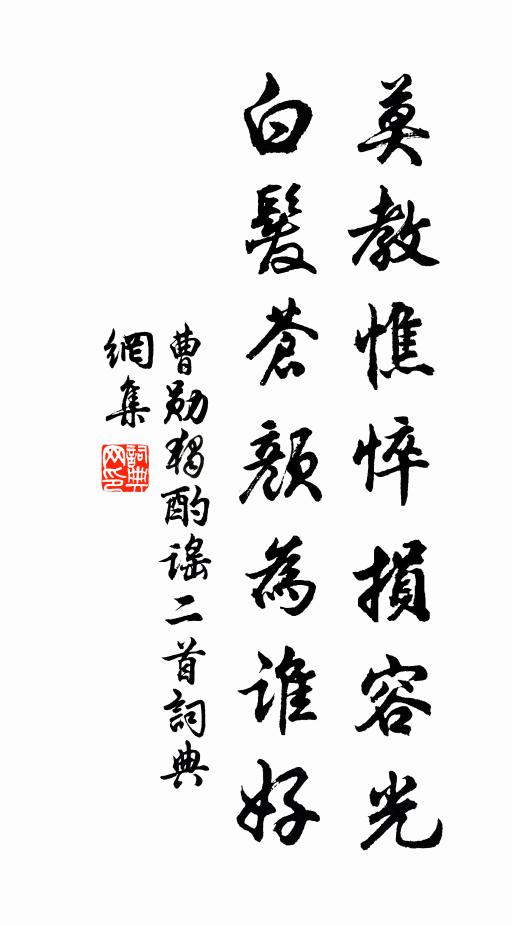 莫教憔悴損容光
白髮蒼顏為誰好
曹勛獨酌謠二首詞典
網集
詞典網印